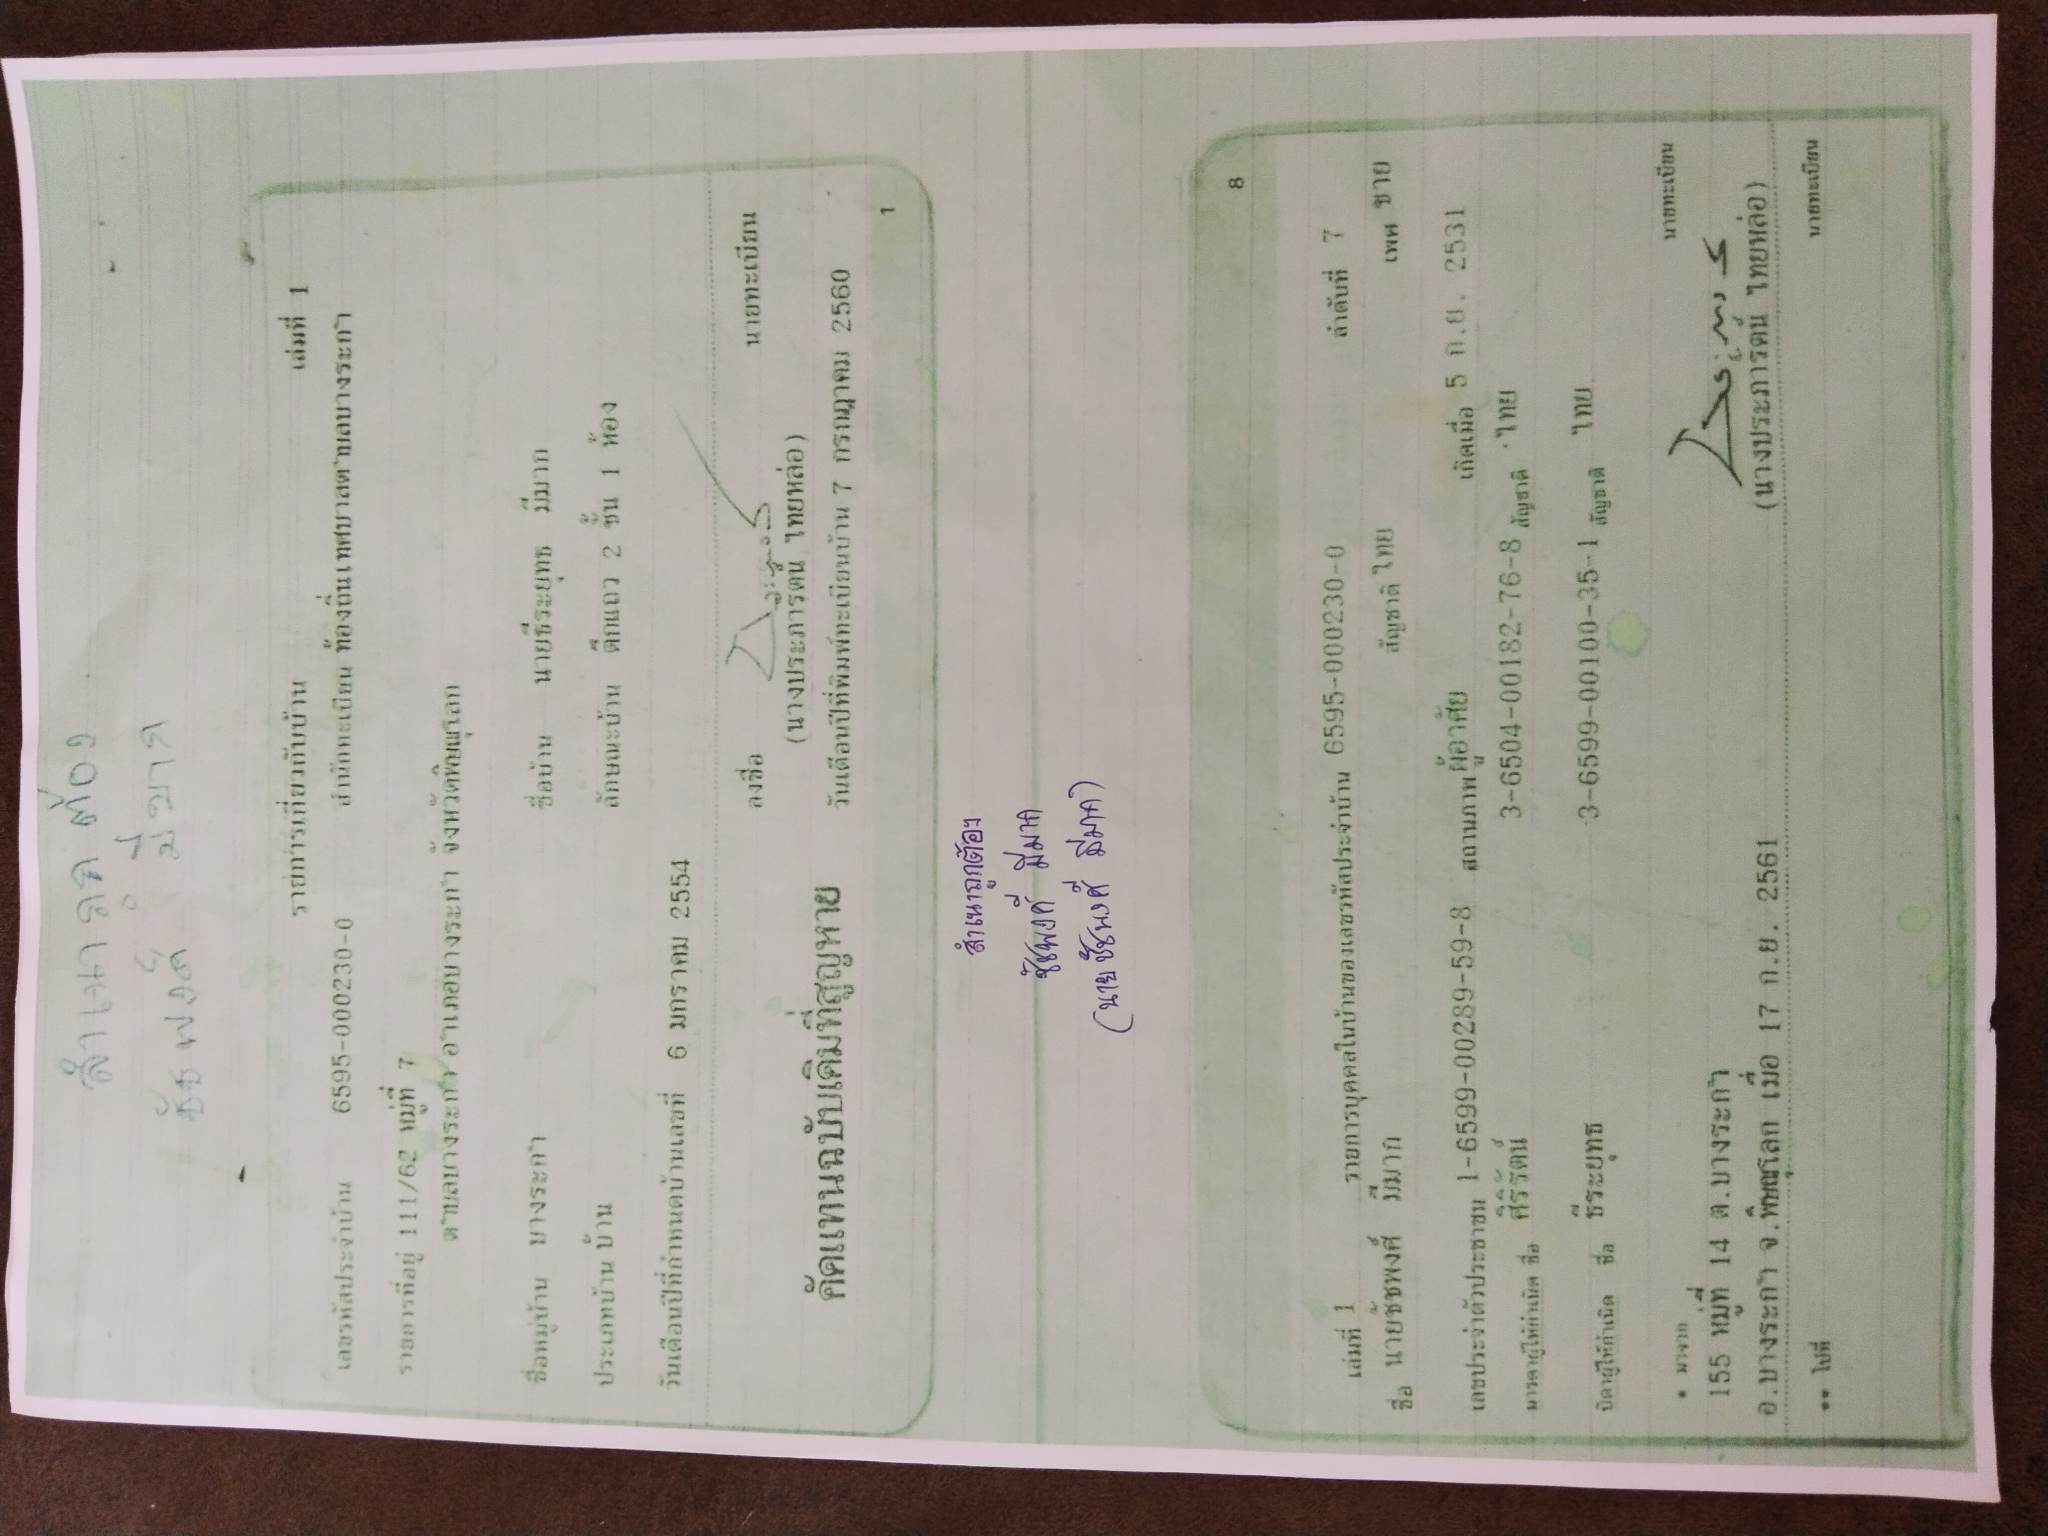 สำเนาถูกต้อง
ชัชพงศ์ มีมาก
รายการเกี่ยวกับบ้าน เล่มที่ 1
เลขรหัสประจำบ้าน 6595-000230-0 สำนักทะเบียน ท้องถิ่นเทศบาลตำบลบางระกำ
รายการที่อยู่ 111/62 หมู่ที่ 7
ตำบลบางระกำ อำเภอบางระกำ จังหวัดพิษณุโลก
ชื่อหมู่บ้าน บางระกำ ชื่อบ้าน นายธีระยุทธ มีมาก
ประเภทบ้าน บ้าน ลักษณะบ้าน ตึกแถว 2 ชั้น 1 ห้อง
วันเดือนปีที่กำหนดบ้านเลขที่ 6 มกราคม 2554
ลงชื่อ นายทะเบียน
(นางประภารัตน์ ไทยหล่อ)
คัดแทนฉบับเดิมที่สูญหาย วันเดือนปีที่พิมพ์ทะเบียนบ้าน 7 กรกฎาคม 2560
1
สำเนาถูกต้อง
ชัชพงศ์ มีมาก
(นายชัชพงศ์ มีมาก)
8
เล่มที่ 1 รายการบุคคลในบ้านของเลขรหัสประจำบ้าน 6595-000230-0 ลำดับที่ 7
ชื่อ นายชัชพงศ์ มีมาก สัญชาติ ไทย เพศ ชาย
เลขประจำตัวประชาชน 1-6599-00289-59-8 สถานภาพ ผู้อาศัย เกิดเมื่อ 5 ก.ย. 2531
มารดาผู้ให้กำเนิด ชื่อ ศิริรัตน์ 3-6504-00182-76-8 สัญชาติ ไทย
บิดาผู้ให้กำเนิด ชื่อ ธีระยุทธ 3-6599-00100-35-1 สัญชาติ ไทย
* มาจาก นายทะเบียน
155 หมู่ที่ 14 ต.บางระกำ
อ.บางระกำ จ.พิษณุโลก เมื่อ 17 ก.ย. 2561 (นางประภารัตน์ ไทยหล่อ)
** ไปที่ นายทะเบียน